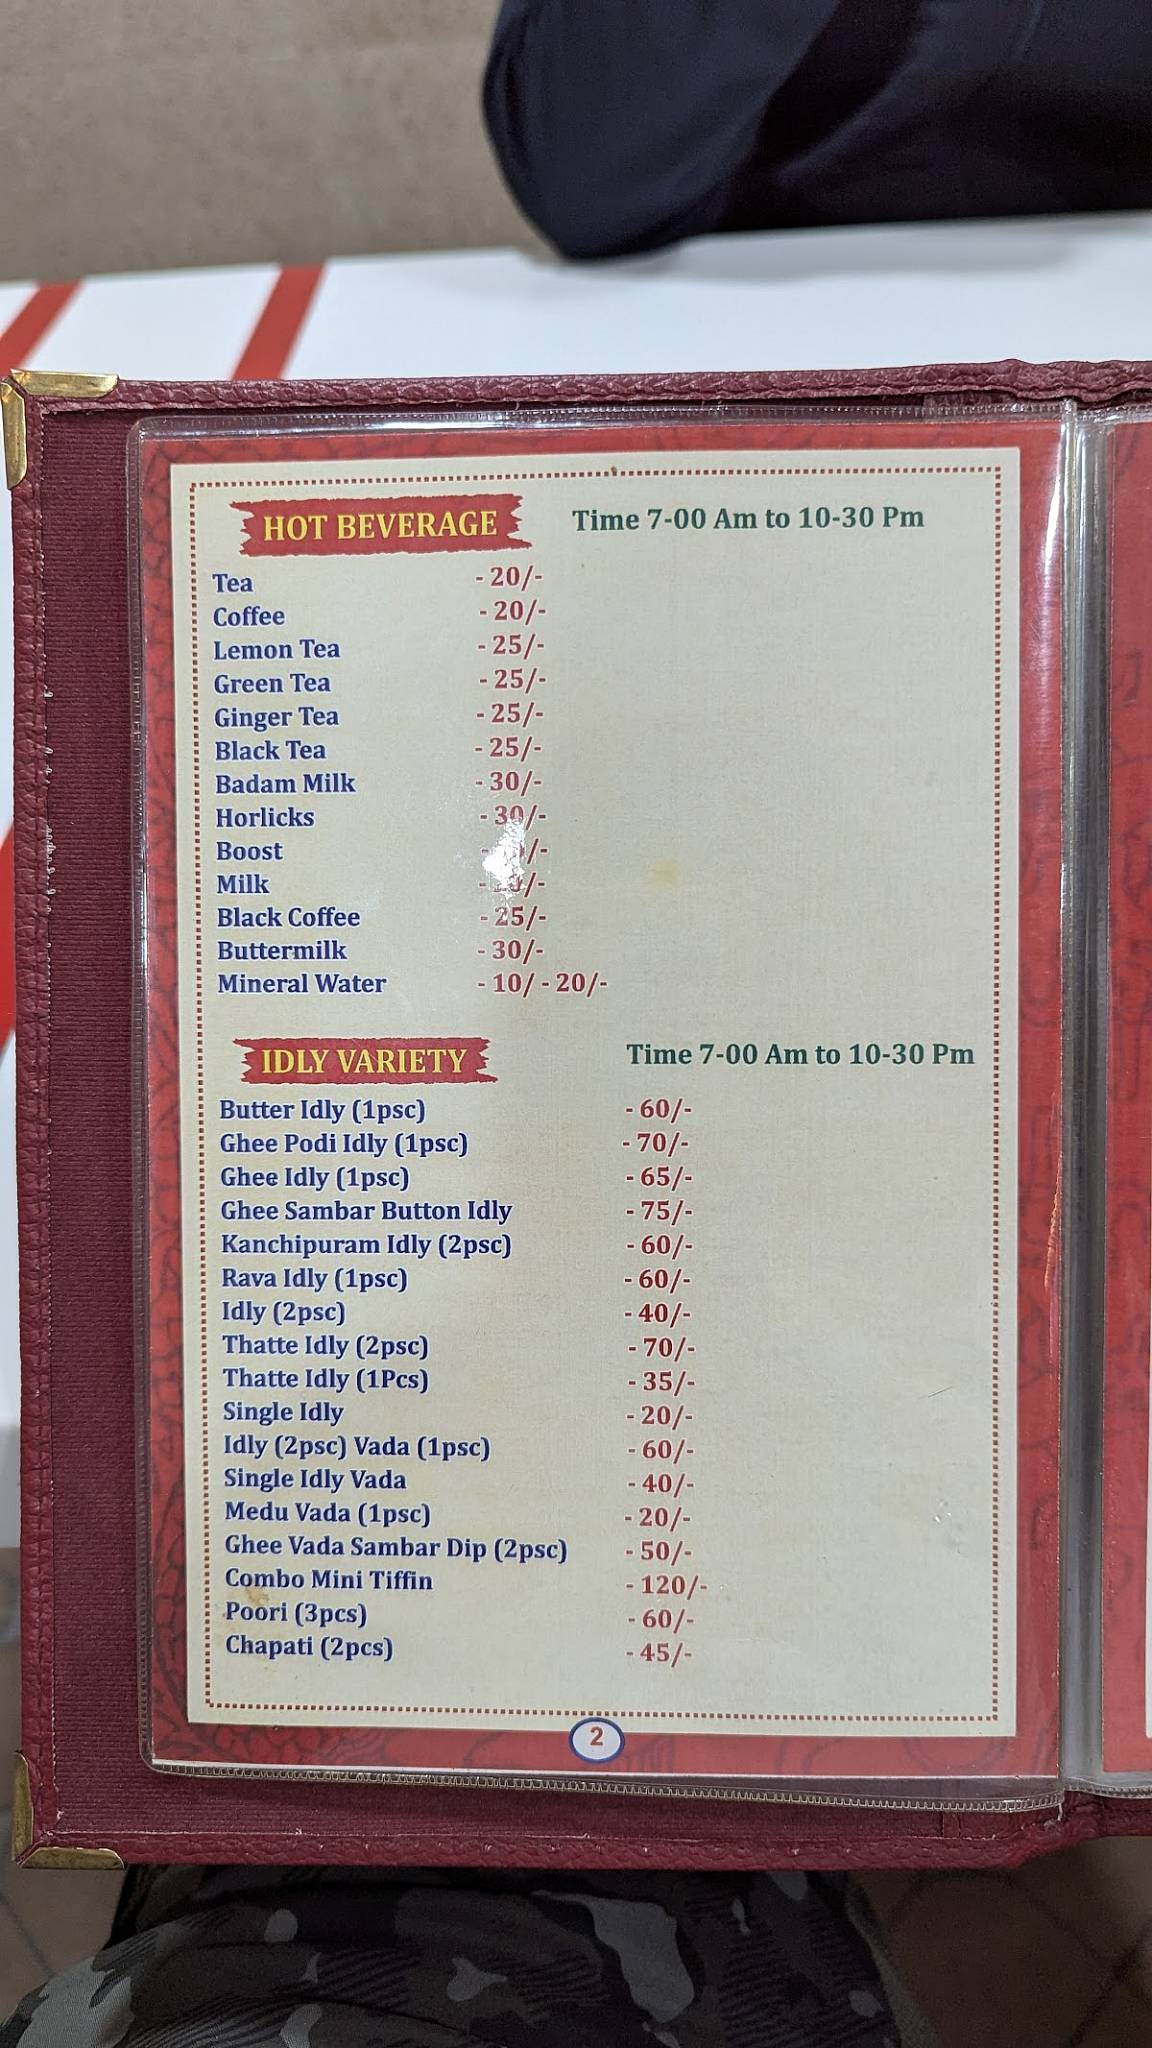 HOT BEVERAGE Time 7-00 Am to 10-30 Pm
Tea - 20/-
Coffee - 20/-
Lemon Tea - 25/-
Green Tea - 25/-
Ginger Tea - 25/-
Black Tea - 25/-
Badam Milk - 30/-
Horlicks - 30/-
Boost
Milk
Black Coffee - 25/-
Buttermilk - 30/-
Mineral Water - 10/ - 20/-
IDLY VARIETY Time 7-00 Am to 10-30 Pm
Butter Idly (1psc) - 60/-
Ghee Podi Idly (1psc) - 70/-
Ghee Idly (1psc) - 65/-
Ghee Sambar Button Idly - 75/-
Kanchipuram Idly (2psc) - 60/-
Rava Idly (1psc) - 60/-
Idly (2psc) - 40/-
Thatte Idly (2psc) - 70/-
Thatte Idly (1Pcs) - 35/-
Single Idly - 20/-
Idly (2psc) Vada (1psc) - 60/-
Single Idly Vada - 40/-
Medu Vada (1psc) - 20/-
Ghee Vada Sambar Dip (2psc) - 50/-
Combo Mini Tiffin - 120/-
Poori (3pcs) - 60/-
Chapati (2pcs) - 45/-
2